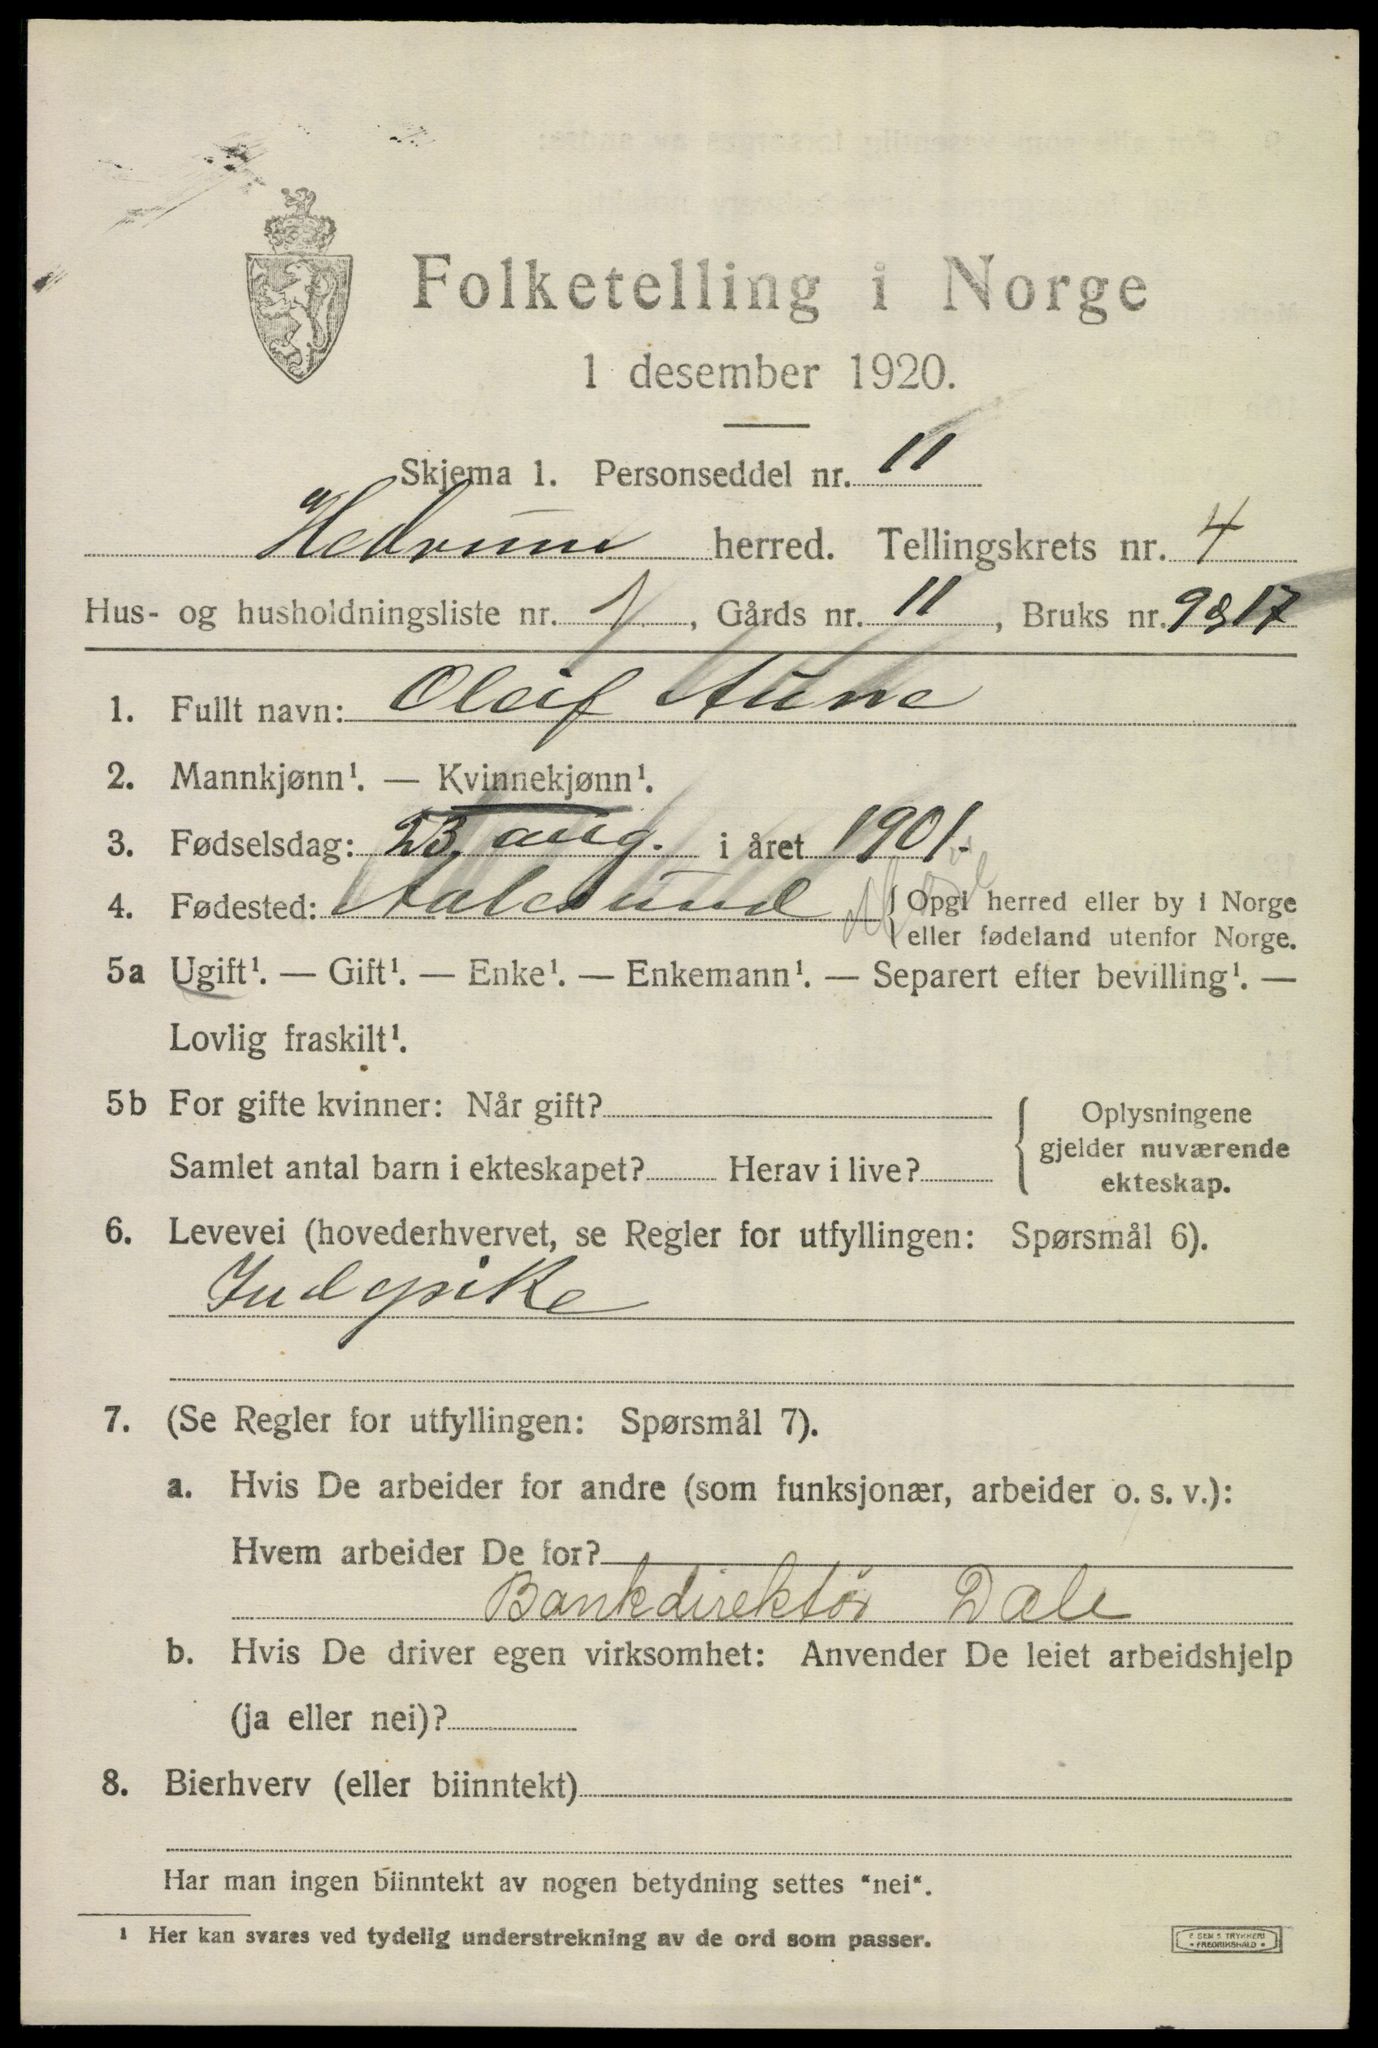 Folketelling i Norge
1 desember 1920.
Skjema 1. Personseddel nr. 11
Hedrum herred. Tellingskrets nr. 4
Hus- og husholdningsliste nr. 1, Gårds nr. 11, Bruks nr. 9 & 17
1. Fullt navn: Oleif Aune
2. Mannkjønn¹. — Kvinnekjønn¹.
3. Fødselsdag: 23. aug. i året 1901.
4. Fødested: Aalesund { Opgi herred eller by i Norge
eller fødeland utenfor Norge.
5a Ugift¹. — Gift¹. — Enke¹. — Enkemann¹. — Separert efter bevilling¹. —
Lovlig fraskilt¹.
5b For gifte kvinner: Når gift? { Oplysningene
gjelder nuværende
Samlet antal barn i ekteskapet? Herav i live? ekteskap.
6. Levevei (hovederhvervet, se Regler for utfyllingen: Spørsmål 6).
Indepike
7. (Se Regler for utfyllingen: Spørsmål 7).
a. Hvis De arbeider for andre (som funksjonær, arbeider o. s. v.):
Hvem arbeider De for?
Bankdirektør Dale
b. Hvis De driver egen virksomhet: Anvender De leiet arbeidshjelp
(ja eller nei)?
8. Bierhverv (eller biinntekt)
Har man ingen biinntekt av nogen betydning settes "nei".
¹ Her kan svares ved tydelig understrekning av de ord som passer.
E. SEM'S TRYKKERI
• FREDRIKSHALD •